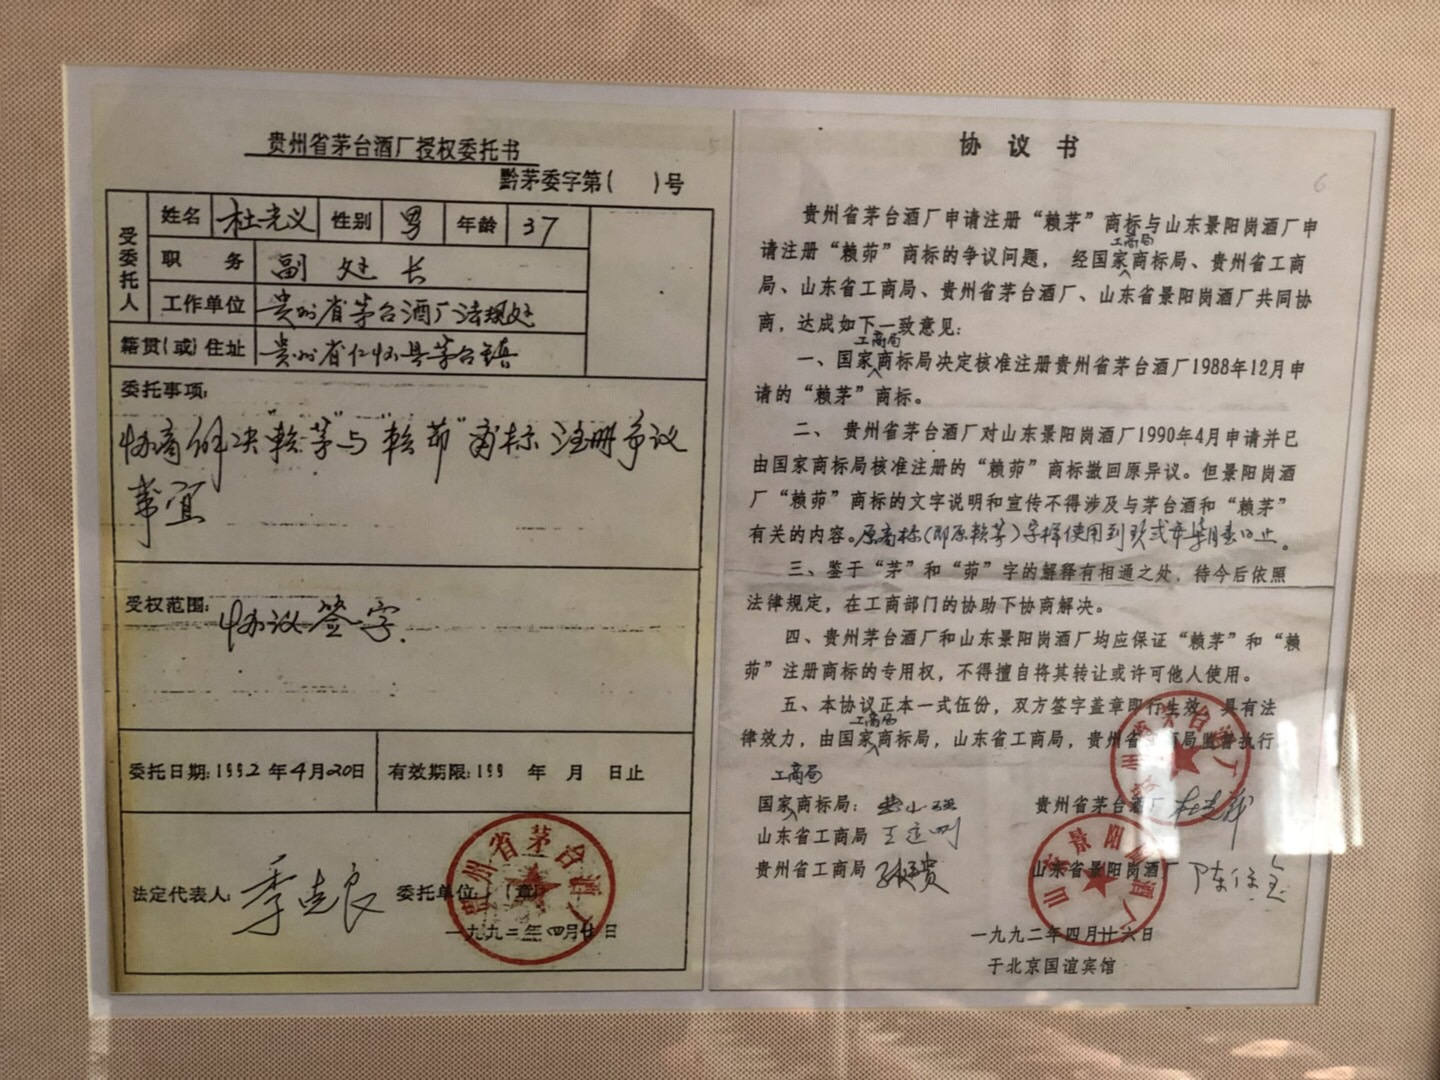 贵州省茅台酒厂授权委托书
黔茅委字第( )号
受委托人
姓名 杜光义 性别 男 年龄 37
职务 副处长
工作单位 贵州省茅台酒厂法规处
籍贯(或)住址 贵州省仁怀县茅台镇
委托事项:
协商解决“赖茅”与“赖茆”商标注册争议
事宜
受权范围: 协议签字.
委托日期:1992年4月20日 有效期限:199 年 月 日止
法定代表人: 季克良 委托单位: (章)
贵州省茅台酒厂
一九九二年四月廿日
协议书
6
贵州省茅台酒厂申请注册“赖茅”商标与山东景阳岗酒厂申
工商局
请注册“赖茆”商标的争议问题, 经国家商标局、贵州省工商
局、山东省工商局、贵州省茅台酒厂、山东省景阳岗酒厂共同协
商,达成如下一致意见:
工商局
一、国家商标局决定核准注册贵州省茅台酒厂1988年12月申
请的“赖茅”商标。
二、 贵州省茅台酒厂对山东景阳岗酒厂1990年4月申请并已
由国家商标局核准注册的“赖茆”商标撤回原异议。但景阳岗酒
厂“赖茆”商标的文字说明和宣传不得涉及与茅台酒和“赖茅”
有关的内容。原商标(即原赖茅)字样使用到玖贰年柒月壹日止。
三、鉴于“茅”和“茆”字的解释有相通之处,待今后依照
法律规定,在工商部门的协助下协商解决。
四、贵州茅台酒厂和山东景阳岗酒厂均应保证“赖茅”和“赖
茆”注册商标的专用权,不得擅自将其转让或许可他人使用。
五、本协议正本一式伍份,双方签字盖章即行生效,具有法
工商局
律效力,由国家商标局,山东省工商局,贵州省工商局监督执行
工商局
国家商标局: 贵州省茅台酒厂 杜光义
山东省工商局
贵州省工商局 山东省景阳岗酒厂
贵州省茅台酒厂
山东景阳岗酒厂
一九九二年四月廿六日
于北京国谊宾馆